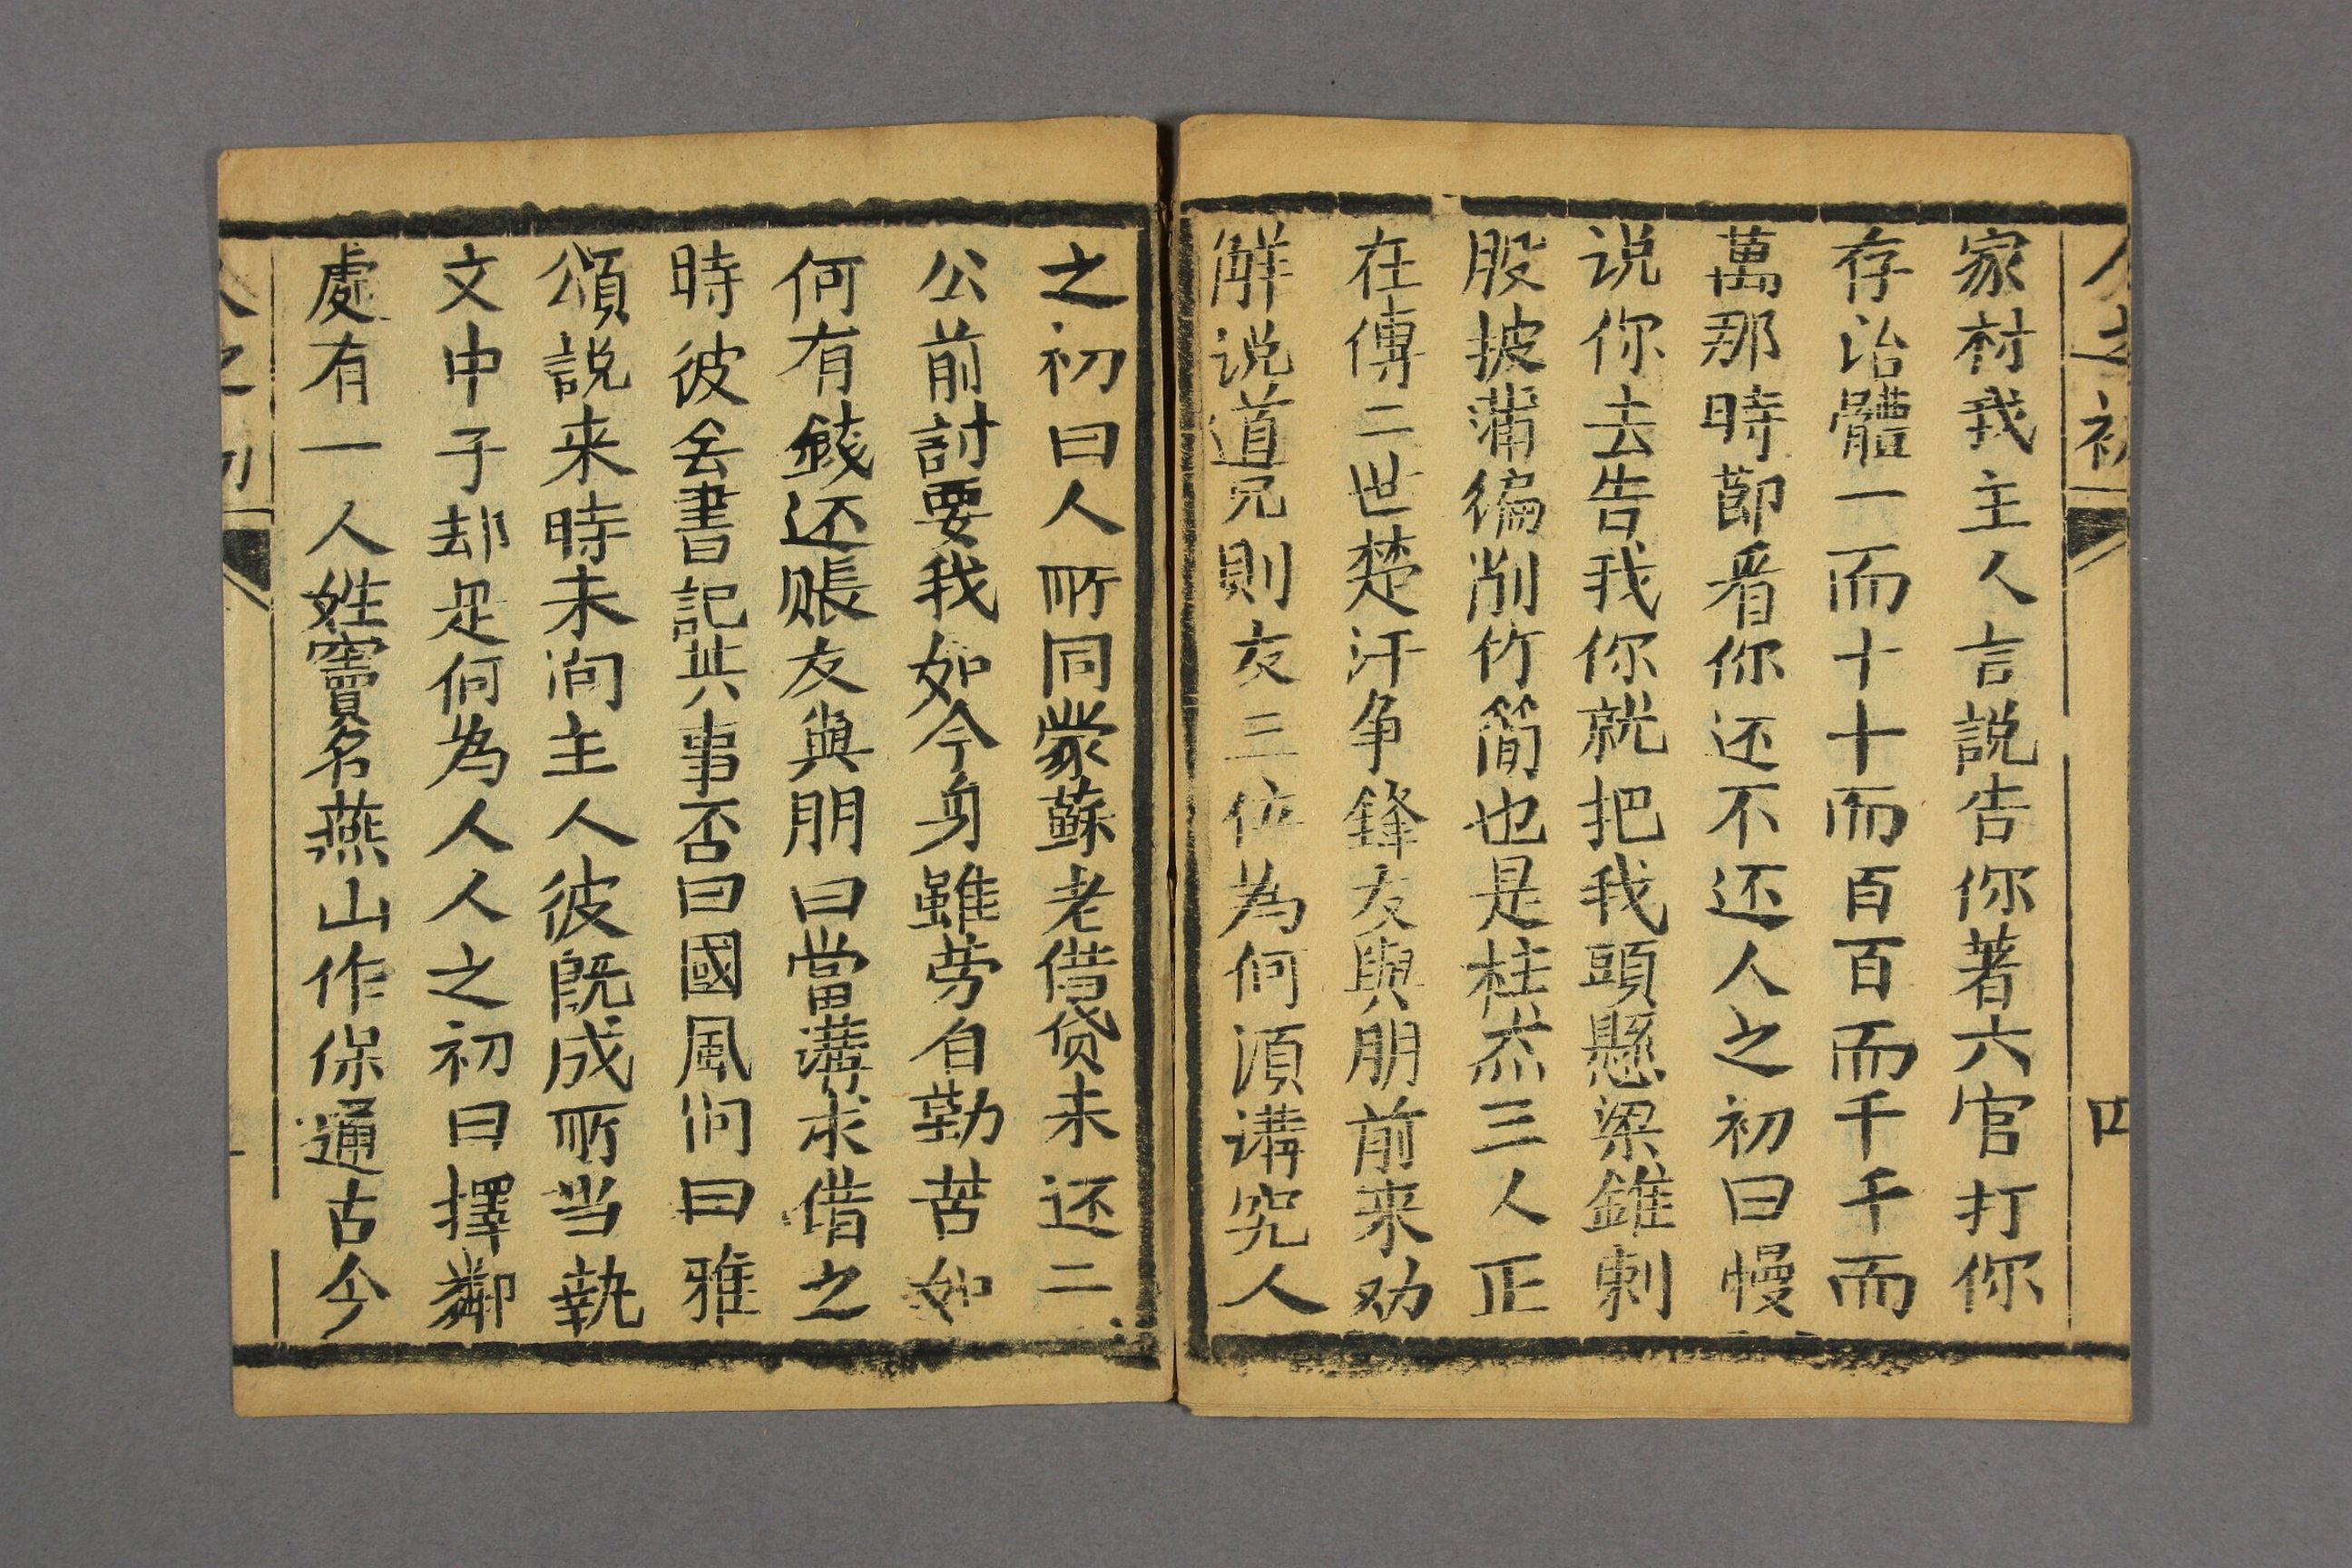 人之初 四
家村我主人言說告你著六官打你
存治體一而十十而百百而千千而
萬那時節看你还不还人之初曰慢
说你去告我你就把我頭懸梁錐刺
股披蒲编削竹简也是枉然三人正
在傳二世楚汗争鋒友與朋前来劝
解说道兄則友三位為何須講究人
之初曰人所同蒙蘇老借贷未还二
公前討要我如今身雖劳自勤苦如
何有錢还賬友與朋曰當講求借之
時彼丢書記其事否曰國風问曰雅
頌說来時未问主人彼既成所当執
文中子却是何為人人之初曰擇鄰
處有一人姓竇名燕山作保通古今
人之初